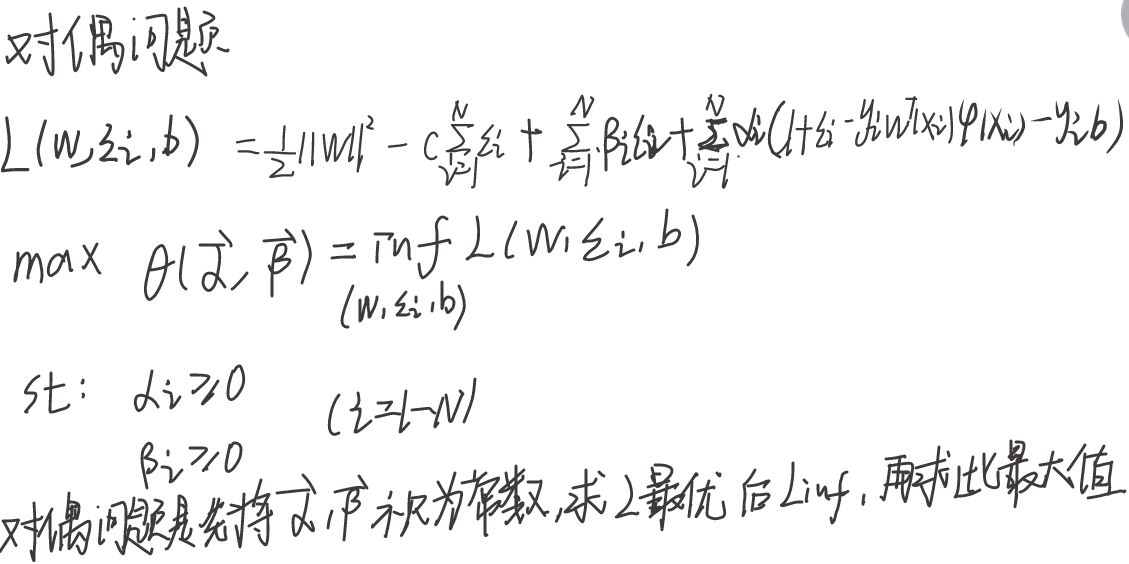 对偶问题
L(w, ξi, b) = 1/2 ||w||² - C ∑_{i=1}^{N} ξi + ∑_{i=1}^{N} βiξi + ∑_{i=1}^{N} αi(1+ξi - yiwᵀ(xi)φ(xi) - yib)
max θ(α⃗, β⃗) = inf L(w, ξi, b)
(w, ξi, b)
st: αi ≥ 0 (i=1-N)
βi ≥ 0
对偶问题是先将 α⃗, β⃗ 视为常数,求L最优后Linf,再求此最大值